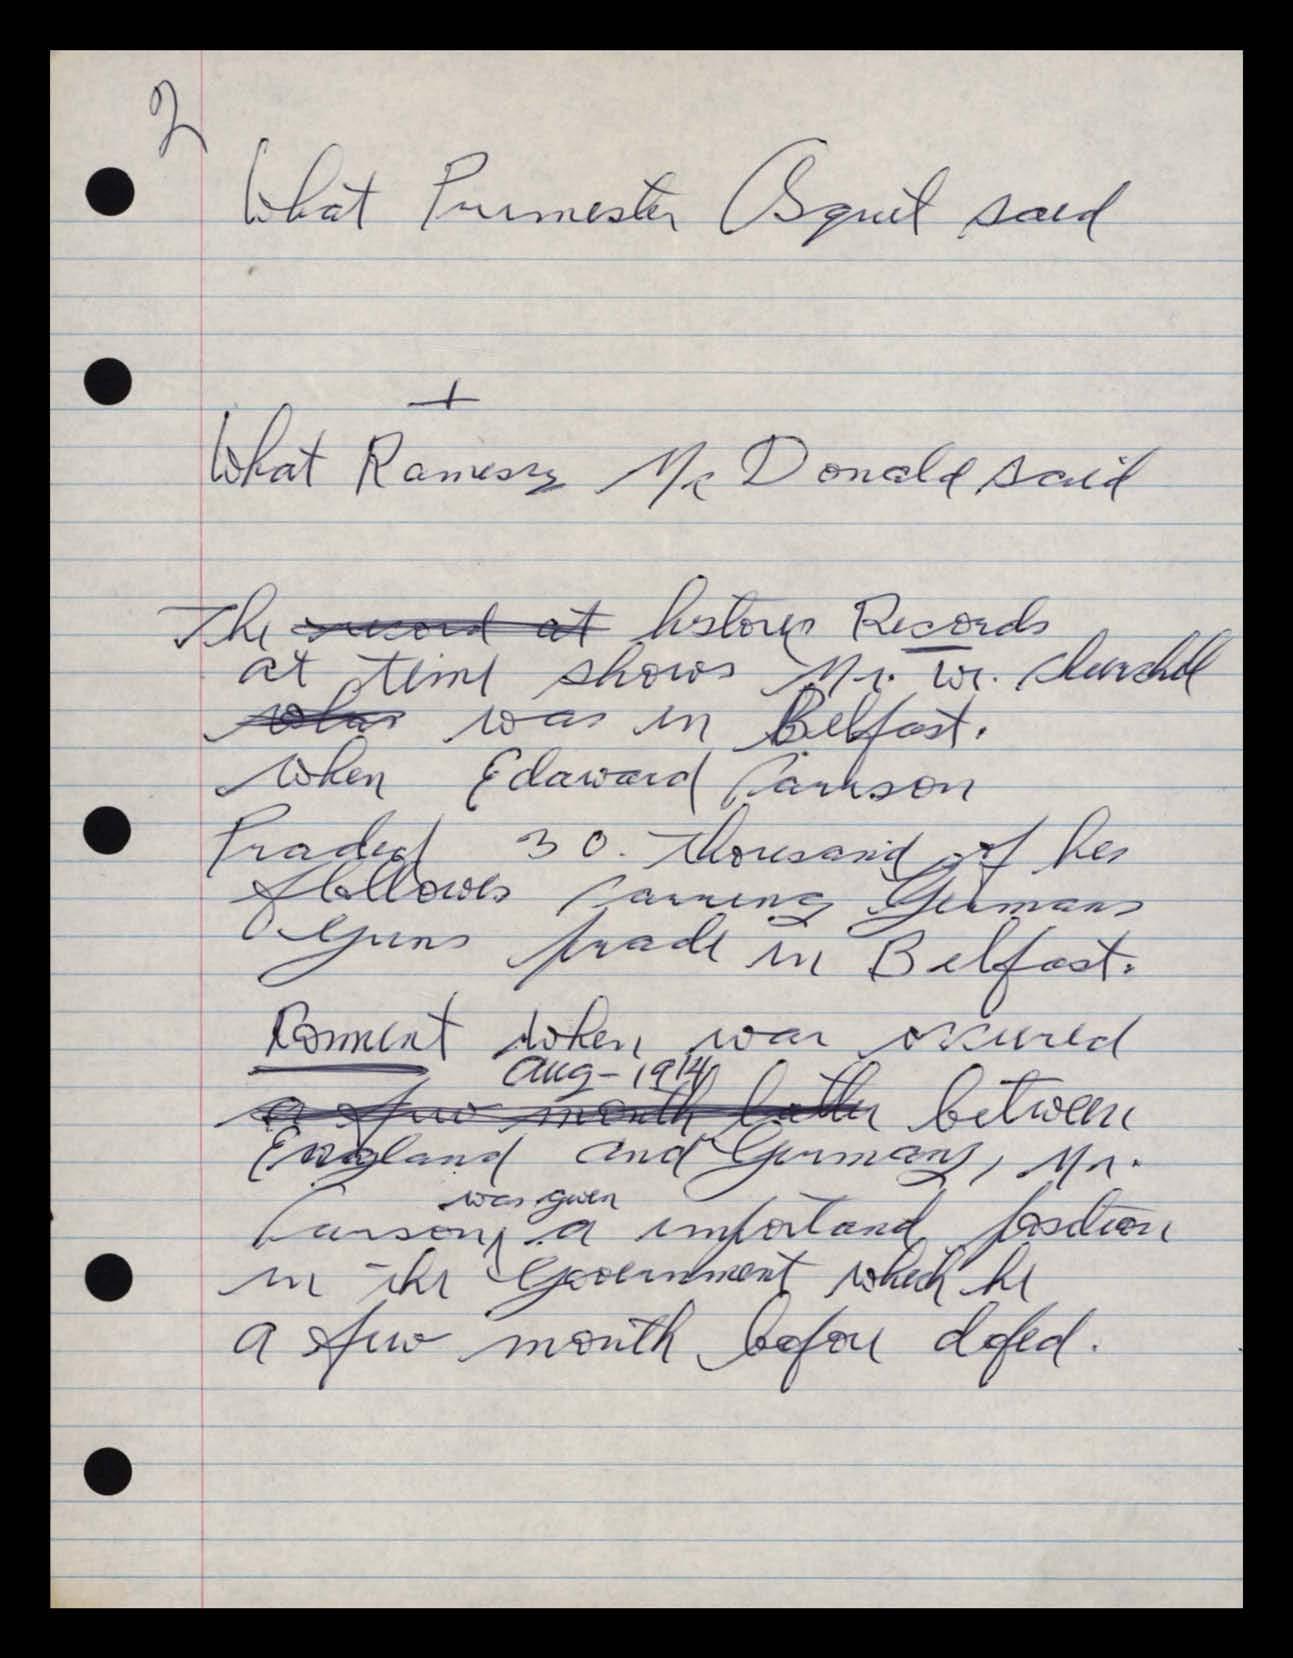 2
What Prumester Asquit said
+
What Ramesy Mc Donald said
The record at history Records
at time shows Mr. W. Churchill
was in Belfast.
when Edaward Carson
Praded 30. thousand of his
followes carring Germans
Guns prade in Belfast.
Comment when war occured
Aug - 1914
a few month latter between
England and Germany, Mr.
was given
Carson, a importand position
in the Government which he
a few month before defed.